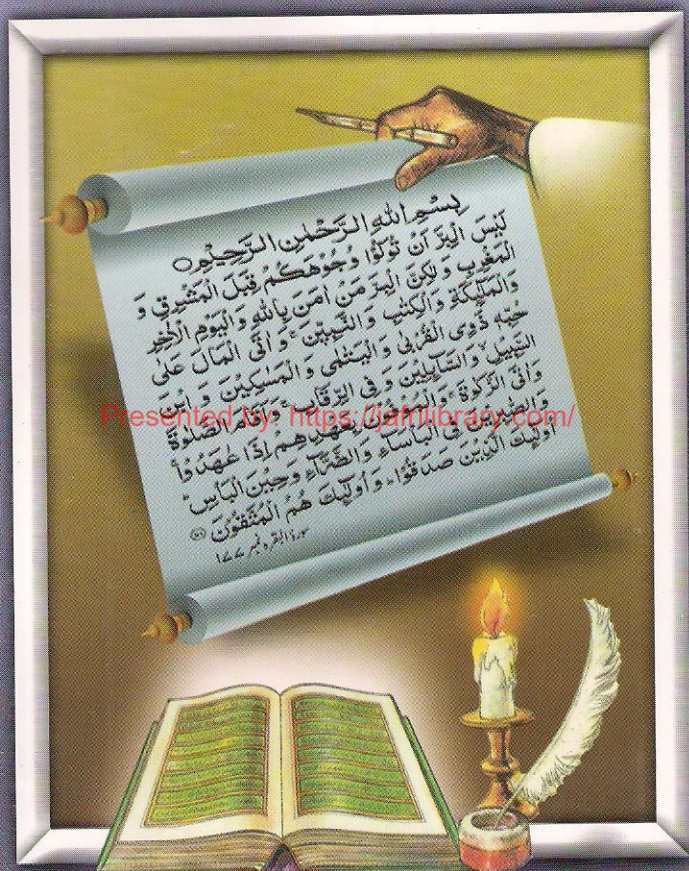 بِسْمِ اللهِ الرَّحْمٰنِ الرَّحِيْمِ
لَيْسَ الْبِرَّ اَنْ تُوَلُّوْا وُجُوْهَكُمْ قِبَلَ الْمَشْرِقِ وَ
الْمَغْرِبِ وَ لٰكِنَّ الْبِرَّ مَنْ اٰمَنَ بِاللهِ وَ الْيَوْمِ الْاٰخِرِ
وَالْمَلٰٓئِكَةِ وَ الْكِتٰبِ وَ النَّبِيّٖنَ وَ اٰتَى الْمَالَ عَلٰى
حُبِّهٖ ذَوِى الْقُرْبٰى وَ الْيَتٰمٰى وَ الْمَسٰكِيْنَ وَ ابْنَ
السَّبِيْلِ وَ السَّآئِلِيْنَ وَ فِى الرِّقَابِ وَ اَقَامَ الصَّلٰوةَ
وَ اٰتَى الزَّكٰوةَ وَ الْمُوْفُوْنَ بِعَهْدِهِمْ اِذَا عٰهَدُوْا
وَ الصّٰبِرِيْنَ فِى الْبَاْسَآءِ وَ الضَّرَّآءِ وَ حِيْنَ الْبَاْسِ
اُولٰٓئِكَ الَّذِيْنَ صَدَقُوْا وَ اُولٰٓئِكَ هُمُ الْمُتَّقُوْنَ
سورۃ البقرہ نمبر ۱۷۷
Presented by: https://jafrilibrary.com/